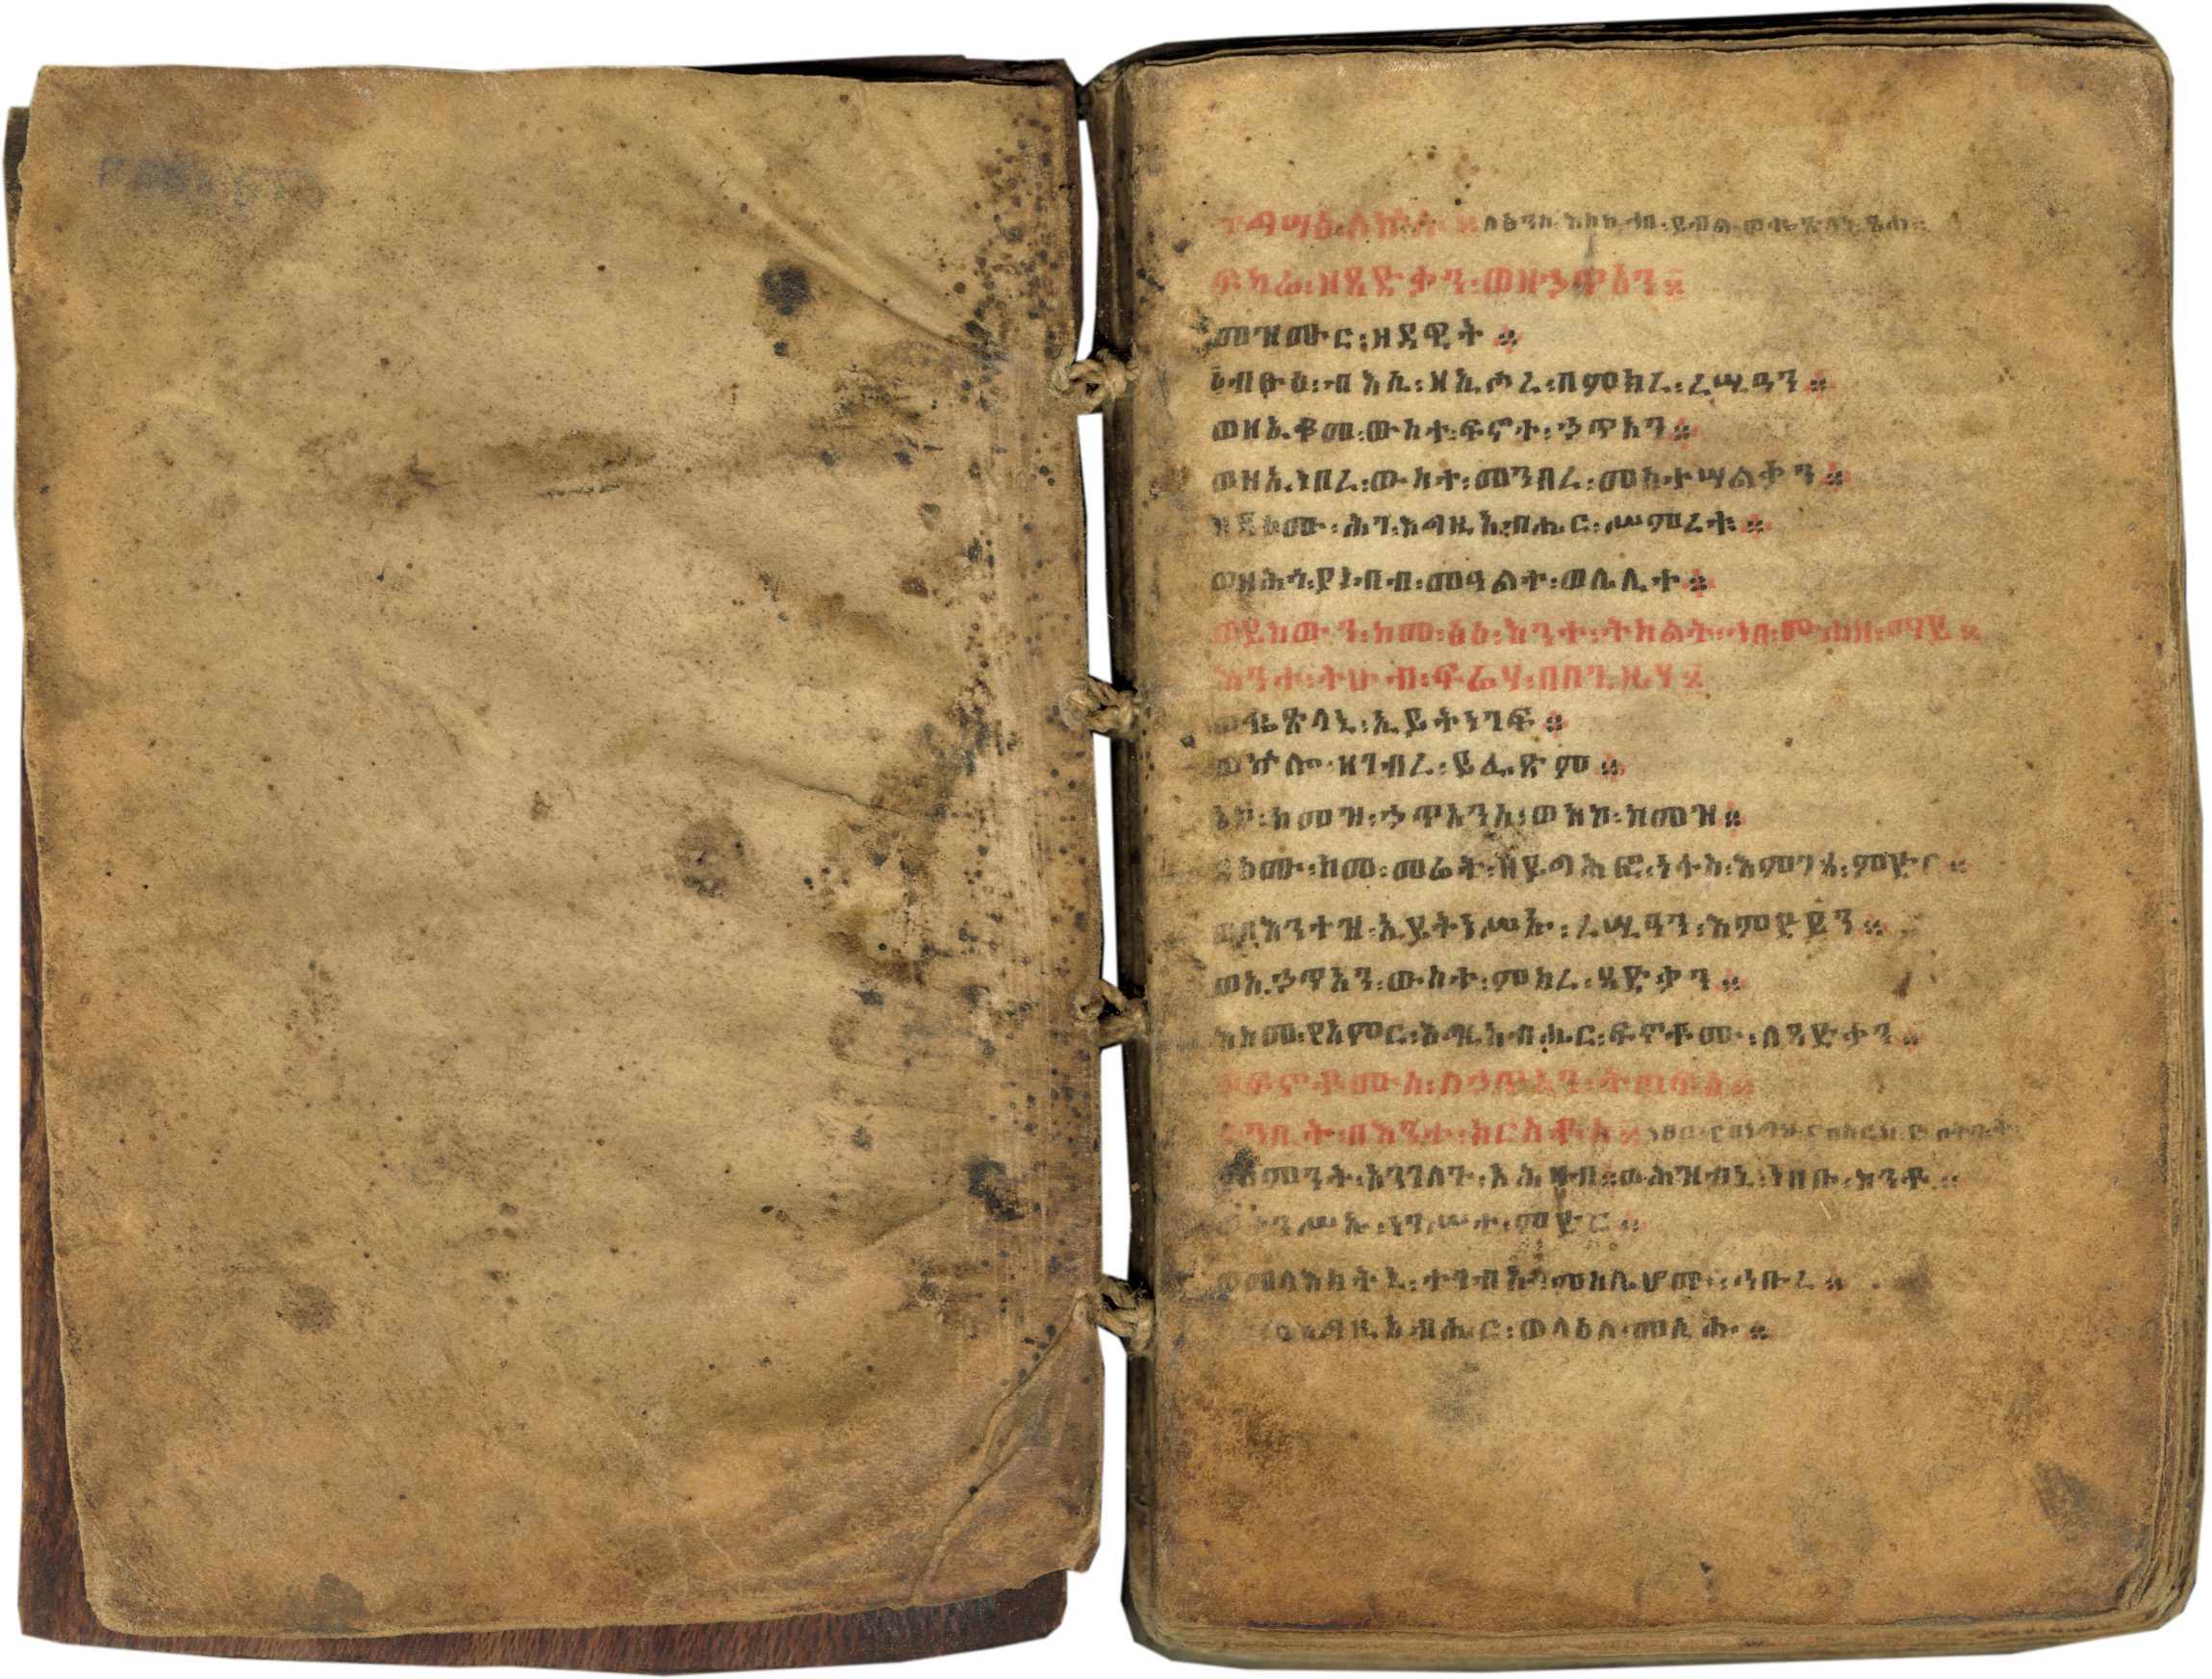 ፍካሬ፡ዘጻድቃን፡ወዘኃጥአን።
መዝሙር፡ዘዳዊት።
ብፁዕ፡ብእሲ፡ዘኢሖረ፡በምክረ፡ረሢዓን።
ወዘኢቆመ፡ውስተ፡ፍኖተ፡ኃጥአን።
ወዘኢነበረ፡ውስተ፡መንበረ፡መስተሣልቃን።
ዘዳዕሙ፡ሕገ፡እግዚአብሔር፡ሥምረቱ።
ወዘሕጎ፡ያነብብ፡መዓልተ፡ወሌሊተ።
ወይከውን፡ከመ፡ዕፅ፡እንተ፡ትክልት፡ኀበ፡ሙሐዘ፡ማይ።
እንተ፡ትሁብ፡ፍሬሃ፡በበጊዜሃ።
ወቈጽላኒ፡ኢይትነገፍ።
ወኵሎ፡ዘገብረ፡ይፌጽም።
አኮ፡ከመዝ፡ኃጥአንሰ፡ወአኮ፡ከመዝ።
ዳዕሙ፡ከመ፡መሬት፡ዘይግሕፎ፡ነፋስ፡እምገጸ፡ምድር።
ወበእንተዝ፡ኢይትነሥኡ፡ረሢዓን፡እምደይን።
ወኢኃጥአን፡ውስተ፡ምክረ፡ጻድቃን።
እስመ፡ያአምር፡እግዚአብሔር፡ፍኖቶሙ፡ለጻድቃን።
ወፍኖቶሙሰ፡ለኃጥአን፡ትጠፍእ።
ትንቢት፡በእንተ፡ክርስቶስ።
ለምንት፡አንገለጉ፡አሕዛብ።ወሕዝብኒ፡ነበቡ፡ከንቶ።
ወተንሥኡ፡ነገሥተ፡ምድር።
ወመላእክትኒ፡ተጋብኡ፡ምስሌሆሙ፡ኅቡረ።
እግዚአብሔር፡ወላዕለ፡መሲሑ።